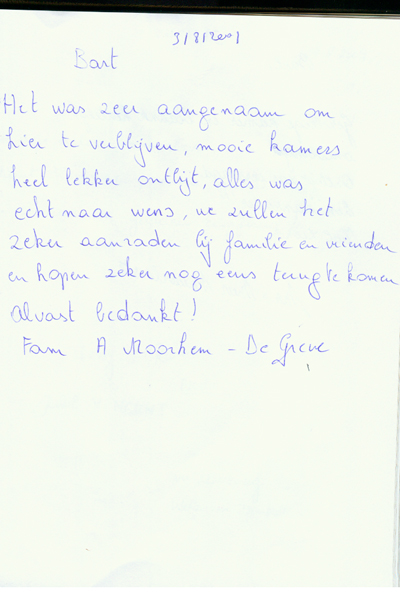 3/8/2001
Bart
Het was zeer aangenaam om
hier te verblijven, mooie kamers
heel lekker ontbijt, alles was
echt naar wens, we zullen het
zeker aanraden bij familie en vrienden
en hopen zeker nog eens terug te komen
Alvast bedankt!
Fam A Moorhem - De Greve